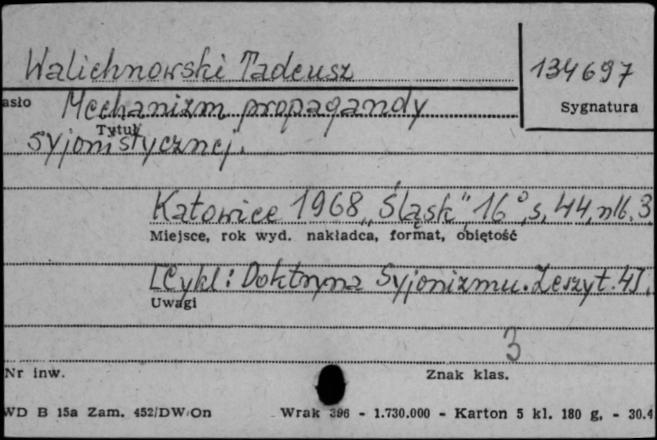 Walichnowski Tadeusz
134697
asło
Sygnatura
Mechanizm propagandy
Tytuł
syjonistycznej.
Katowice 1968 „Śląsk” 16°, s. 44, nlb. 3
Miejsce, rok wyd. nakładca, format, objętość
[Cykl: Doktryna Syjonizmu. Zeszyt. 4].
Uwagi
3
Nr inw.
Znak klas.
WD B 15a Zam. 452/DW/On Wrak 396 - 1.730.000 - Karton 5 kl. 180 g, - 30.4